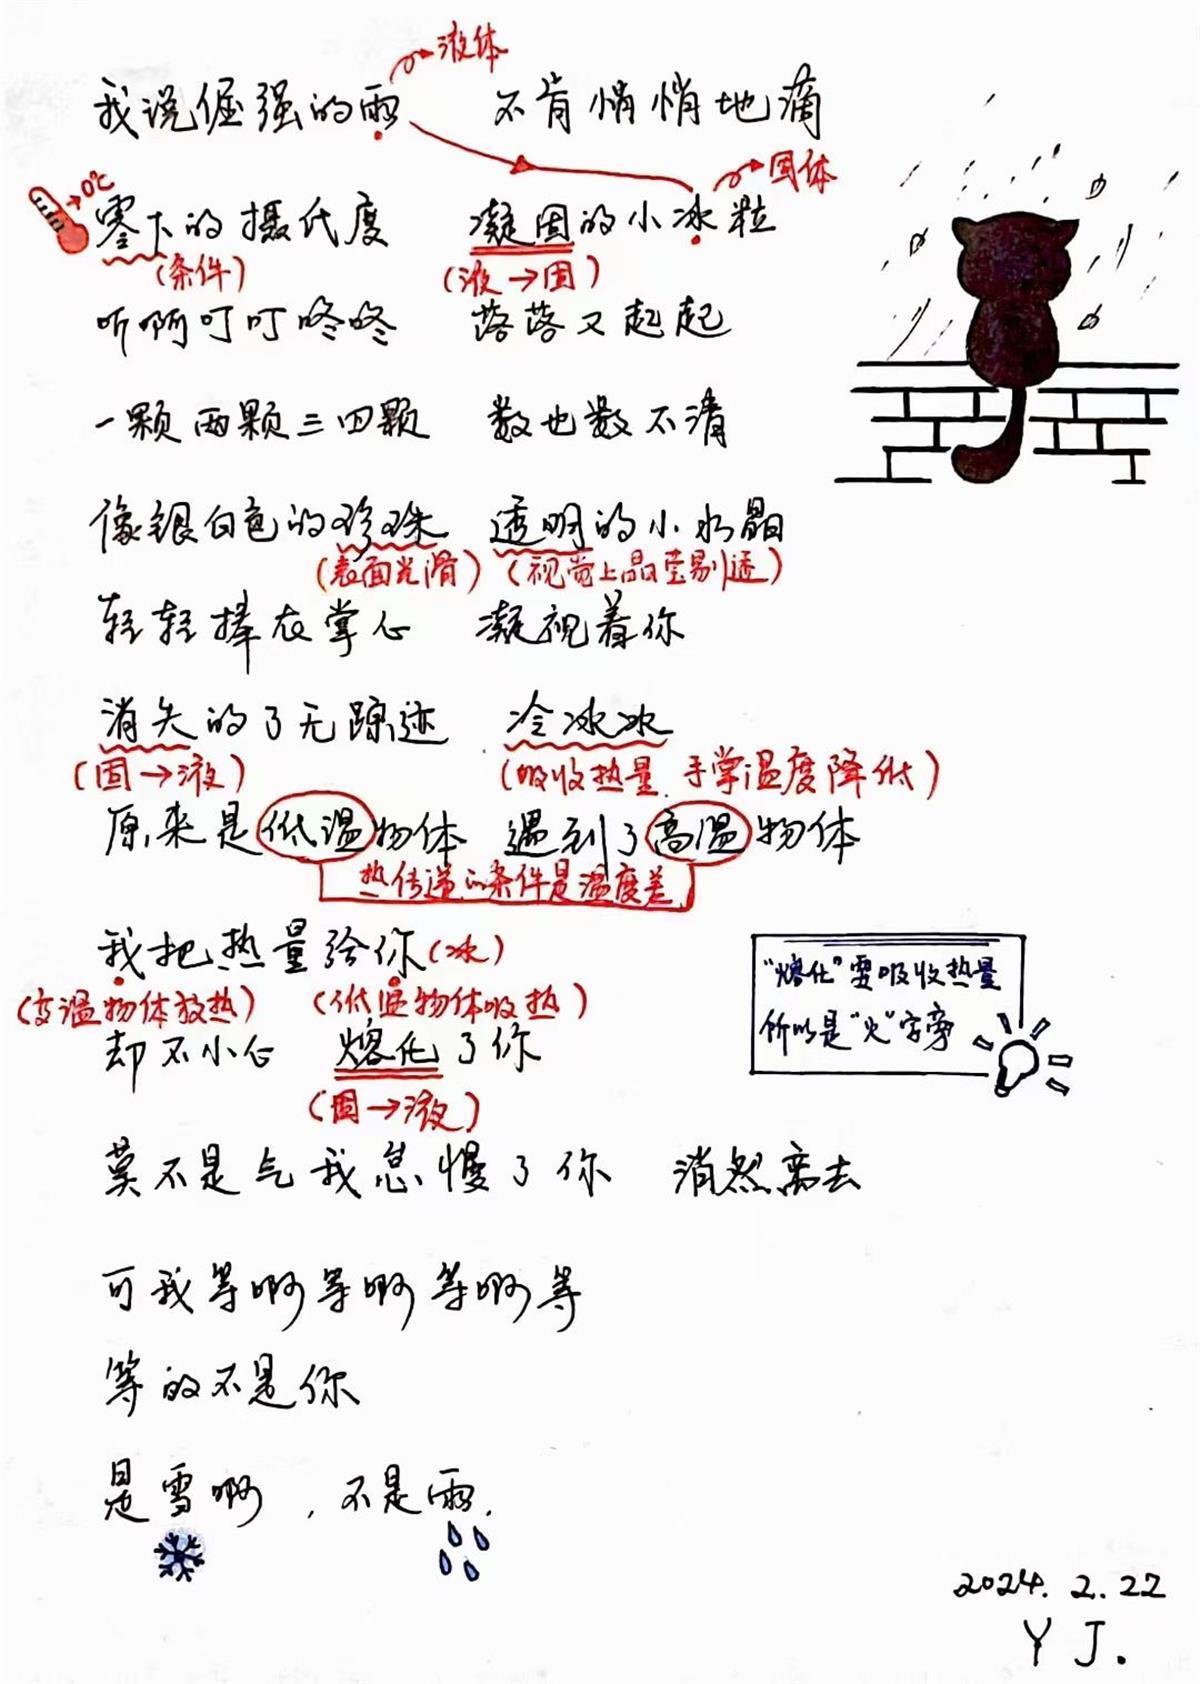 液体
我说倔强的雨 不肯悄悄地滴
固体
0℃
零下的摄氏度 凝固的小冰粒
(条件) (液→固)
听啊叮叮咚咚 落落又起起
一颗两颗三四颗 数也数不清
像银白色的珍珠 透明的小水晶
(表面光滑) (视觉上晶莹剔透)
轻轻捧在掌心 凝视着你
消失的了无踪迹 冷冰冰
(固→液) (吸收热量,手掌温度降低)
原来是低温物体 遇到了高温物体
热传递的条件是温度差
我把热量给你(冰)
(高温物体放热) (低温物体吸热)
却不小心 熔化了你
(固→液)
"熔化"要吸收热量
所以是"火"字旁
莫不是气我怠慢了你 消然离去
可我等啊等啊等啊等
等的不是你
是雪啊,不是雨.
2024.2.22
YJ.